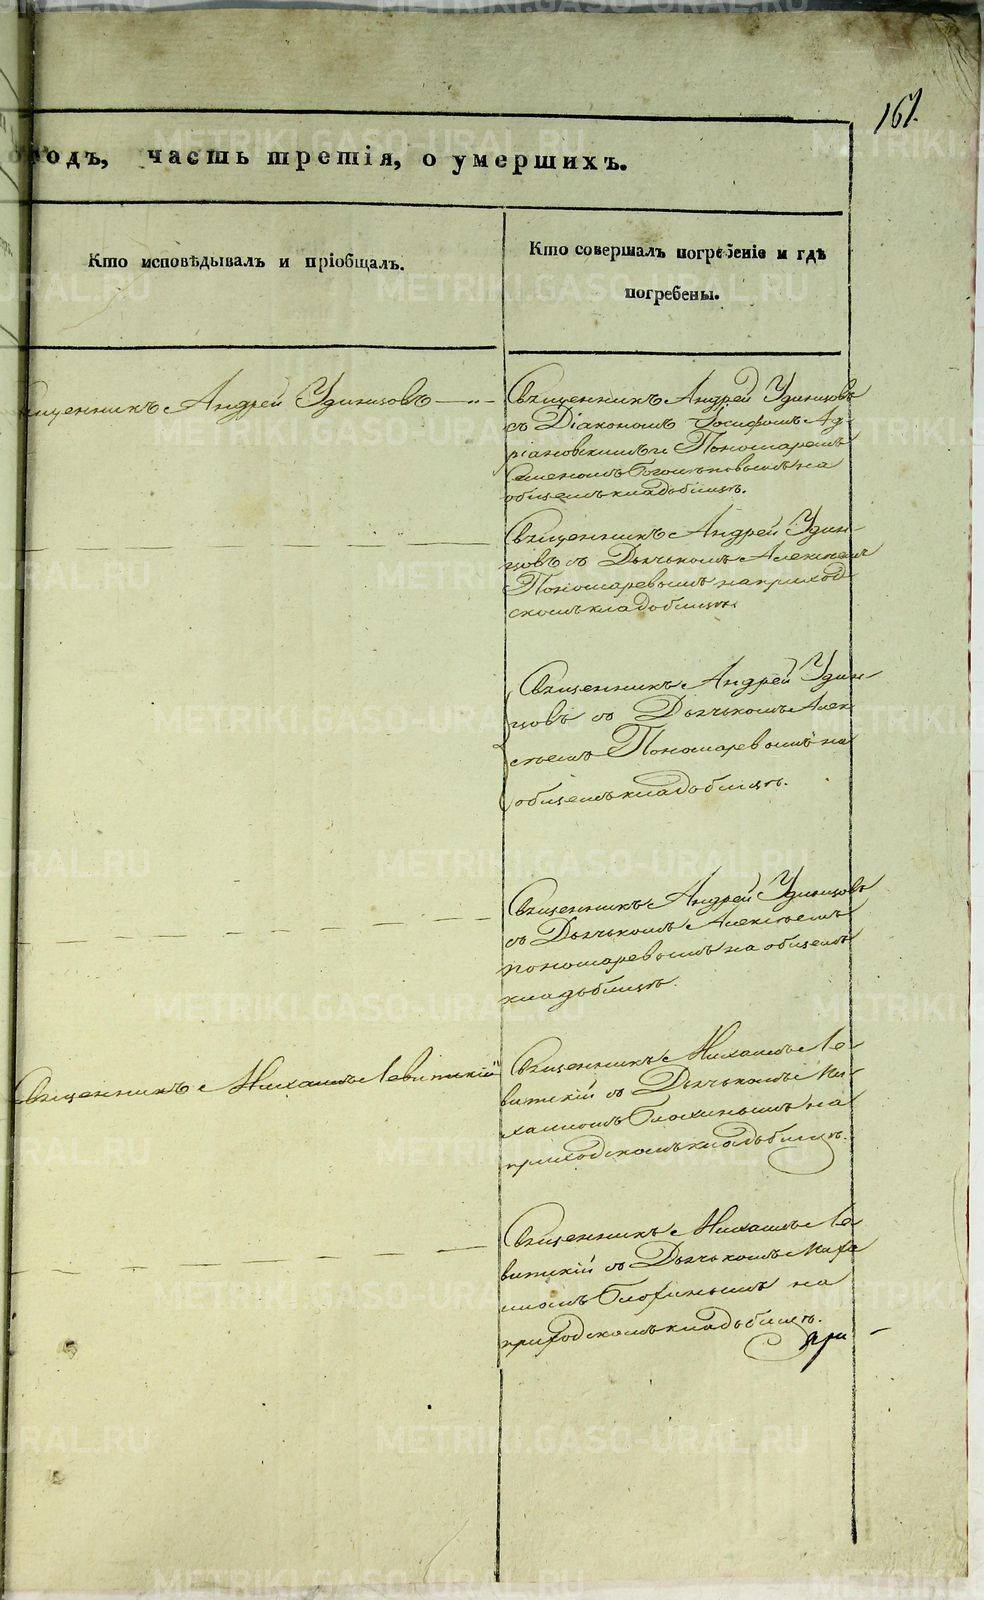 167.
годъ, часть третія, о умершихъ.
Кто исповѣдывалъ и пріобщалъ.
Кто совершалъ погребеніе и гдѣ
погребены.
Священникъ Андрей Удинцовъ
Священникъ Андрей Удинцовъ
съ Діакономъ Іосифомъ Ад-
ріановскимъ и Пономаремъ
Семеномъ Богомоловымъ на
общемъ кладбищѣ.
Священникъ Андрей Удин-
цовъ съ Дьячкомъ Алексѣемъ
Пономаревымъ на приход-
скомъ кладбищѣ.
Священникъ Андрей Удин-
цовъ съ Дьячкомъ Алек-
сѣемъ Пономаревымъ на
общемъ кладбищѣ.
Священникъ Андрей Удинцовъ
съ Дьячкомъ Алексѣемъ
пономаревымъ на общемъ
кладбищѣ.
Священникъ Михаилъ Левитскій
Священникъ Михаилъ Ле-
витскій съ Дьячкомъ Ми-
хаиломъ Блохинымъ на
приходскомъ кладбищѣ.
Священникъ Михаилъ Ле-
витскій съ Дьячкомъ Миха
иломъ Блохинымъ на
приходскомъ кладбищѣ.
при-
METRIKI.GASO-URAL.RU